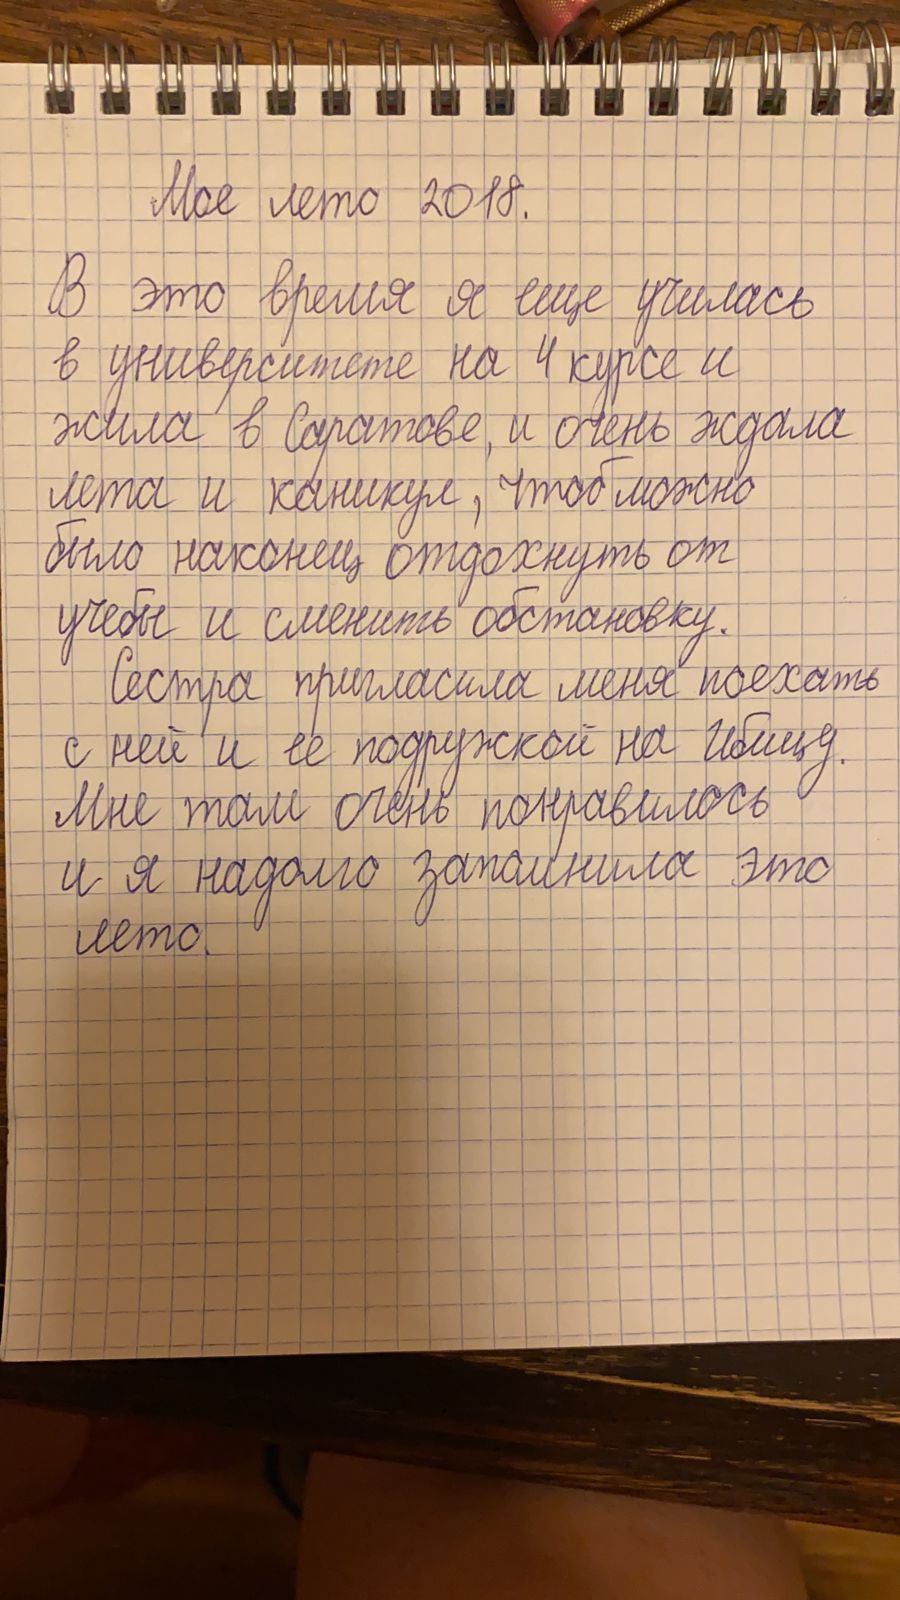 Мое лето 2018.
В это время я еще училась
в университете на 4 курсе и
жила в Саратове, и очень ждала
лета и каникул, чтоб можно
было наконец отдохнуть от
учебы и сменить обстановку.
Сестра пригласила меня поехать
с ней и ее подружкой на Ибицу.
Мне там очень понравилось
и я надолго запомнила это
лето.